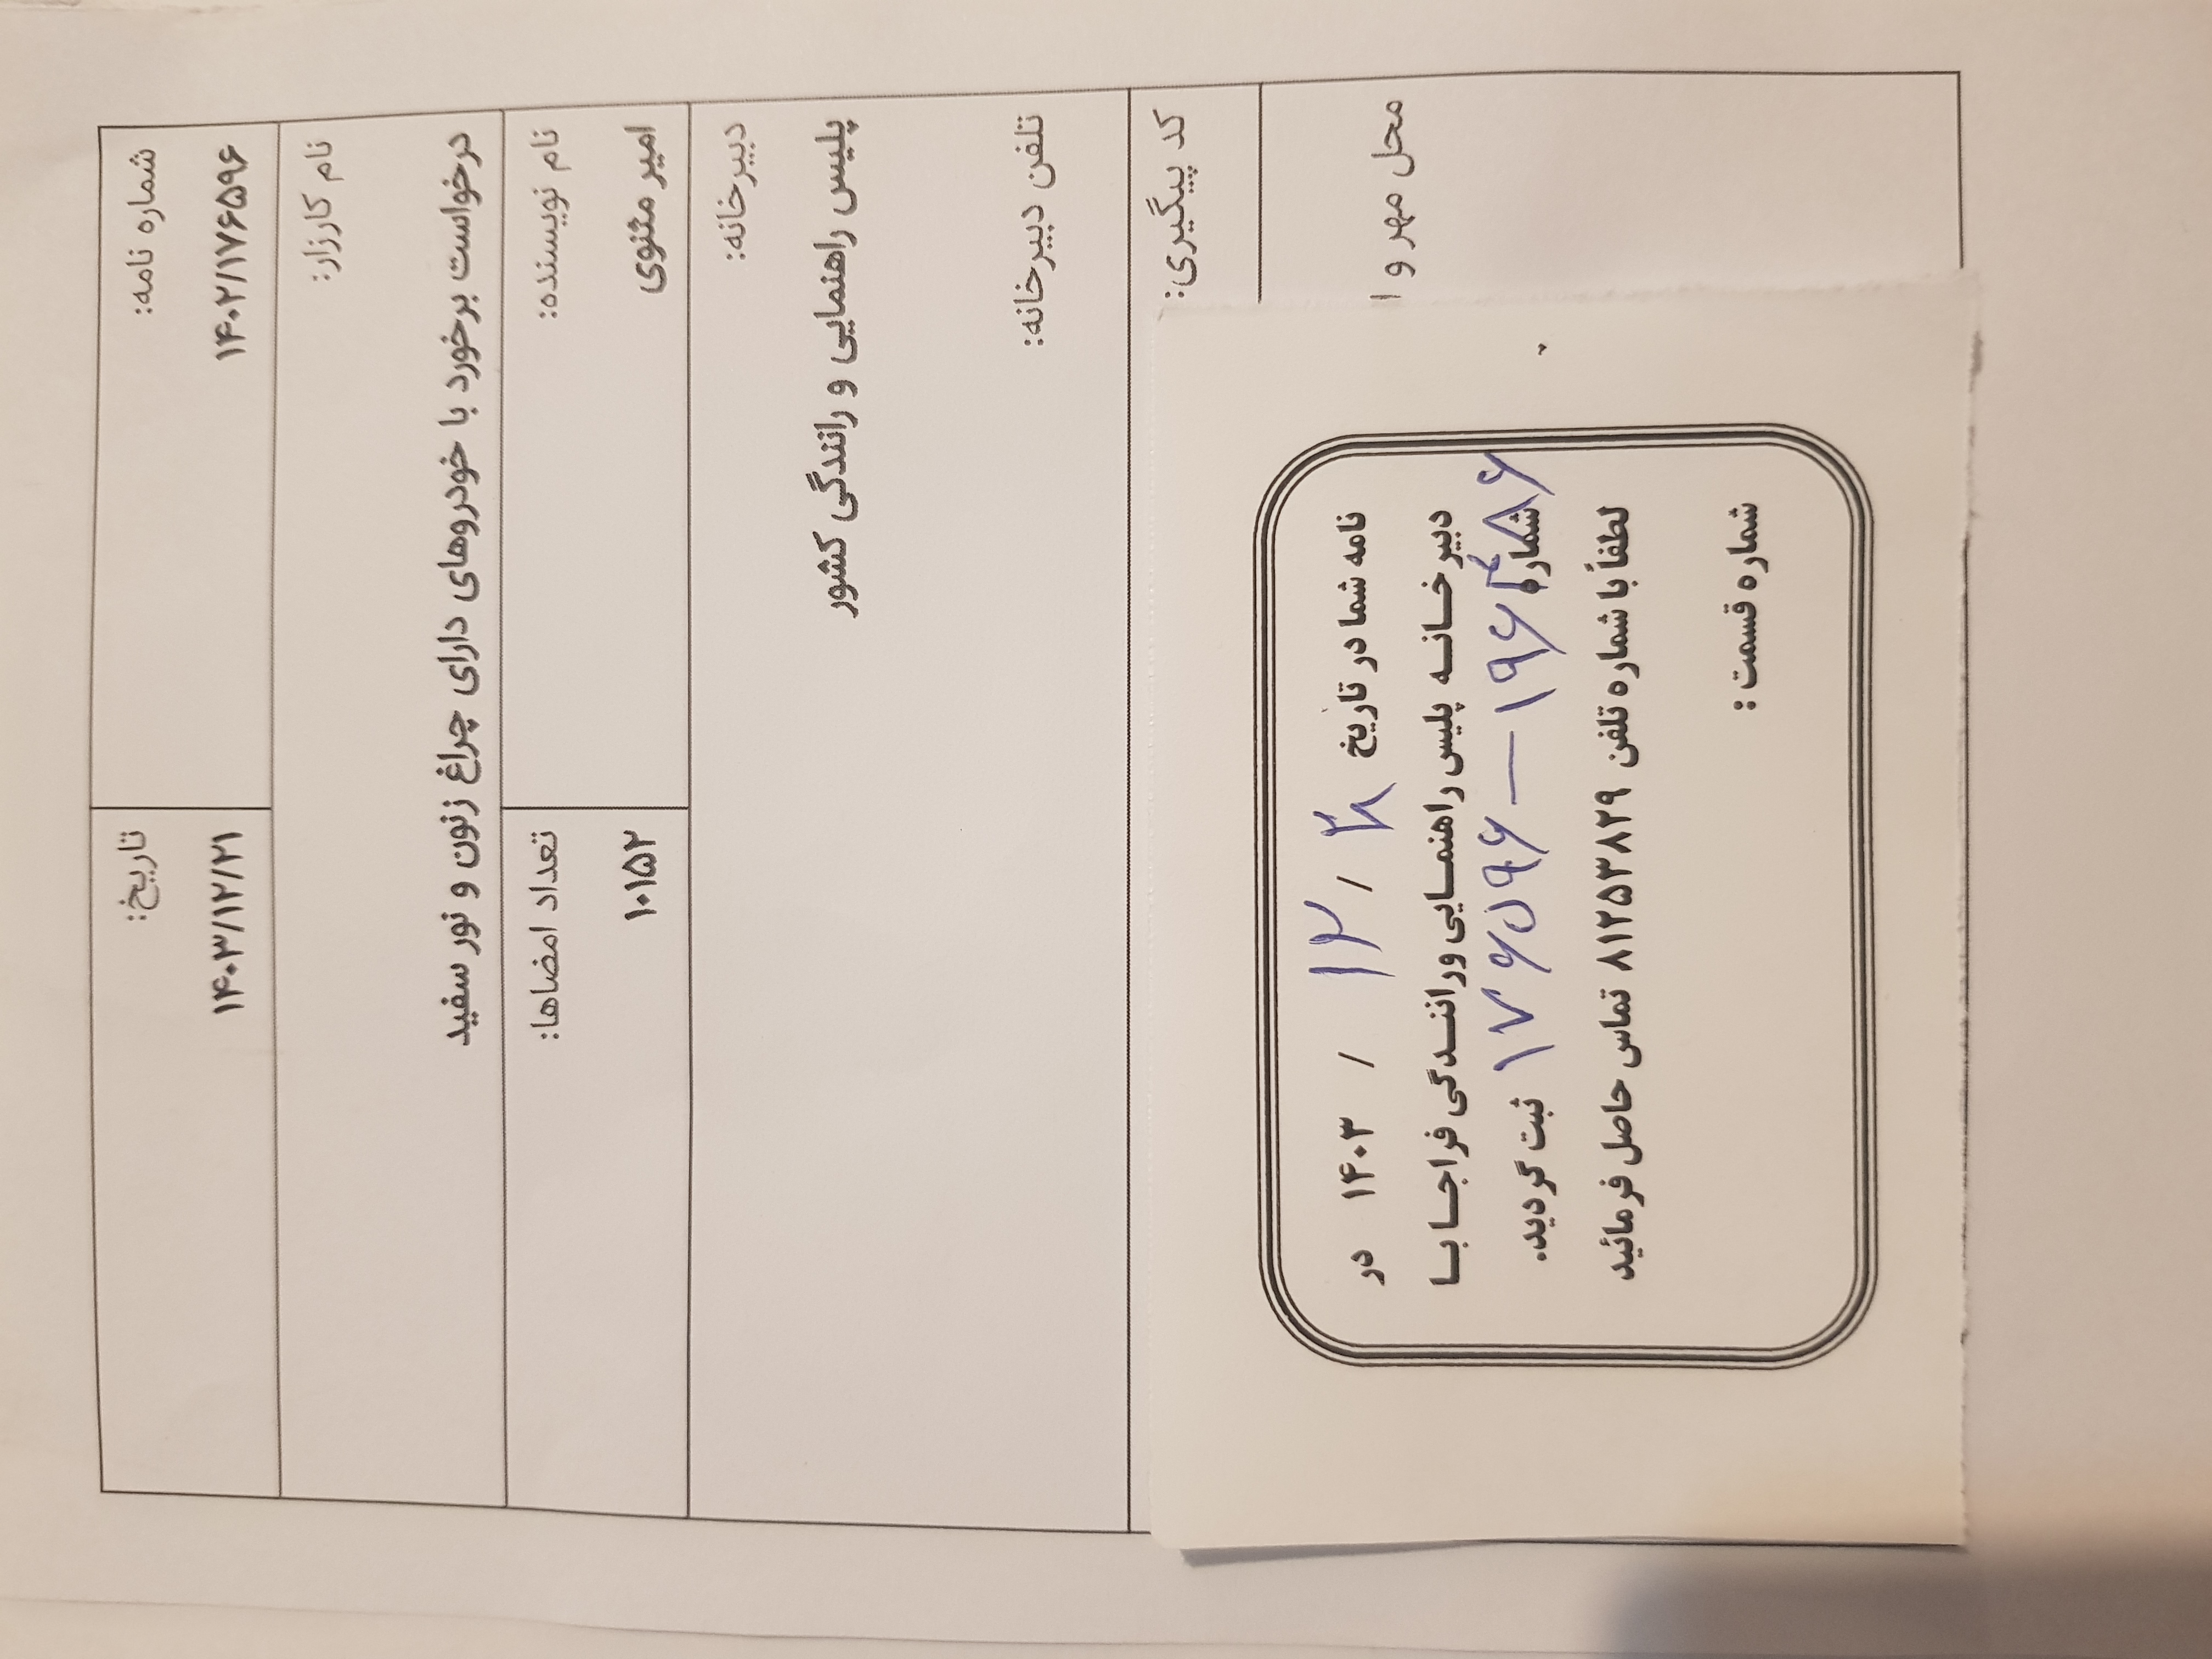 شماره نامه:
۱۴۰۲/۱۷۶۵۹۶
تاریخ:
۱۴۰۳/۱۲/۲۱
نام کارزار:
درخواست برخورد با خودروهای دارای چراغ زنون و نور سفید
نام نویسنده:
امیر مثنوی
تعداد امضاها:
۱۰۱۵۲
دبیرخانه:
پلیس راهنمایی و رانندگی کشور
تلفن دبیرخانه:
کد پیگیری:
محل مهر و ا
نامه شما در تاریخ / ۱۲ / ۱۴۰۳ در
دبیرخانه پلیس راهنمایی ورانندگی فراجا با
شماره ۱۷۶۵۹۶ – ثبت گردید.
لطفاً با شماره تلفن ۸۱۲۵۳۸۲۹ تماس حاصل فرمائید
شماره قسمت :